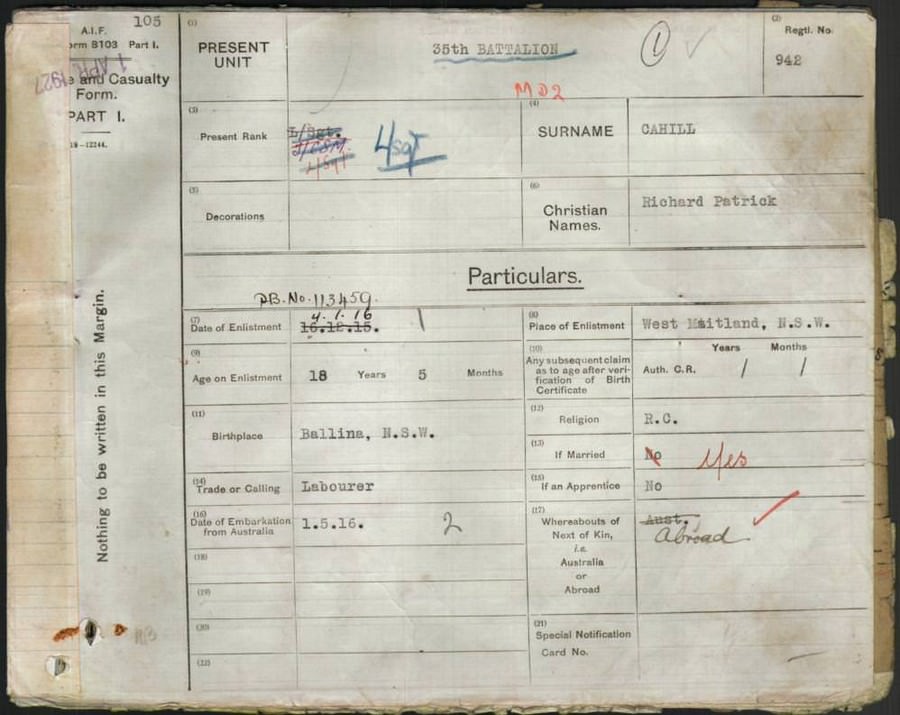 105
A.I.F.
orm B103 Part I.
1 APR 1927
e and Casualty
Form.
PART I.
18—12244.
Nothing to be written in this Margin.
(1)
PRESENT
UNIT
35th BATTALION
1
MD2
(2)
Regtl. No.
942
(3)
Present Rank
L/Sgt.
T/CSM.
L/Sgt
L/Sgt
(4)
SURNAME
CAHILL
(5)
Decorations
(6)
Christian
Names.
Richard Patrick
Particulars.
P.B. No. 113459.
(7)
Date of Enlistment
4.1.16
16.12.15.
(8)
Place of Enlistment
West Maitland, N.S.W.
(9)
Age on Enlistment
18 Years 5 Months
(10)
Any subsequent claim
as to age after veri-
fication of Birth
Certificate
Years Months
Auth. C.R. / /
(11)
Birthplace
Ballina, N.S.W.
(12)
Religion
R.C.
(13)
If Married
No Yes
(14)
Trade or Calling
Labourer
(15)
If an Apprentice
No
(16)
Date of Embarkation
from Australia
1.5.16. 2
(17)
Whereabouts of
Next of Kin,
i.e.
Australia
or
Abroad
Aust.
Abroad
(18)
(19)
(20)
(21)
Special Notification
Card No.
(22)